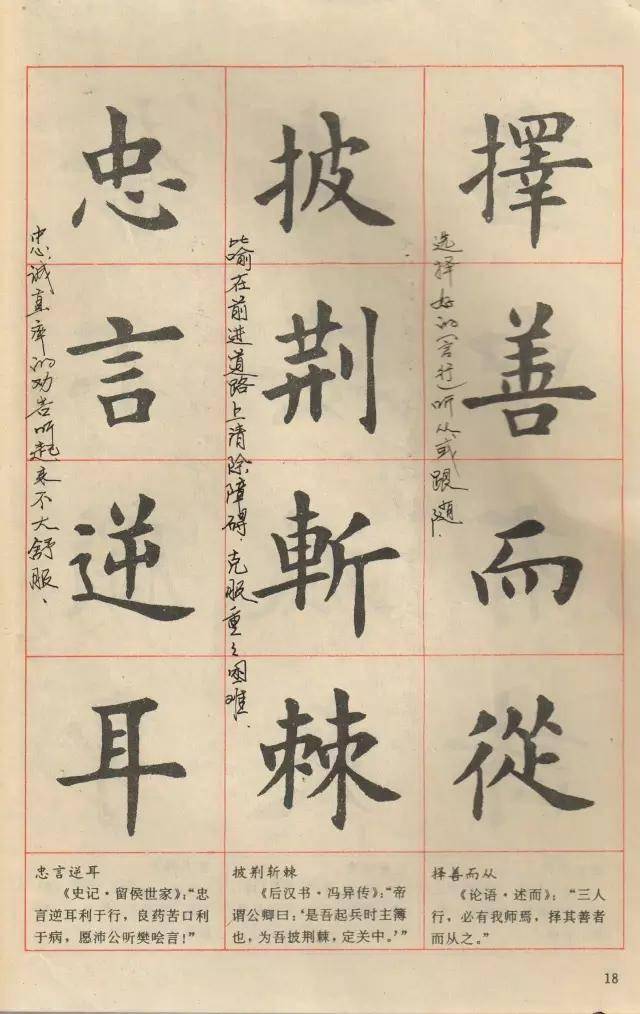 擇善而從
选择好的(言行)听从或跟随.
披荆斬棘
比喻在前进道路上清除障碍.克服重々困难.
忠言逆耳
忠诚直率的劝告听起来不大舒服.
择善而从
《论语·述而》:“三人
行,必有我师焉,择其善者
而从之。”
披荆斩棘
《后汉书·冯异传》:“帝
谓公卿曰:‘是吾起兵时主簿
也,为吾披荆棘,定关中。’”
忠言逆耳
《史记·留侯世家》:“忠
言逆耳利于行,良药苦口利
于病,愿沛公听樊哙言!”
18